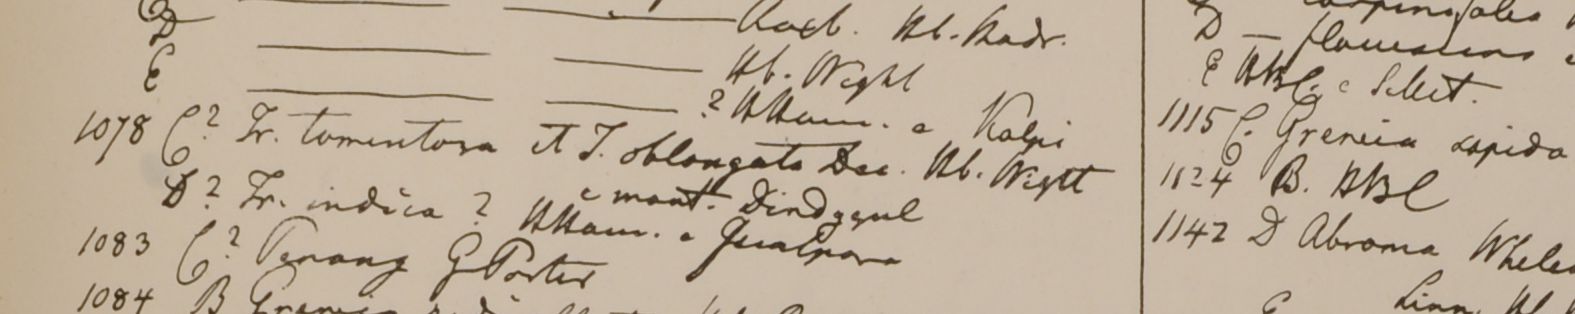 D ——— ——— Roxb. Hb. Madr.
E ——— ——— Hb. Wight
——— ——— ? HHam. e Kalpi
1078 C? Tr. tomentosa et T. oblongata Dec. Hb. Wight
e mont. Dindygul
D? Tr. indica ? HHam. e Gualpara
1083 C? Penang G Porter
1084 B Grewia
D — flavescens
E HBC. e Silhet.
1115 C. Grewia sapida
1124 B. HBC
1142 D Abroma
E Linn.